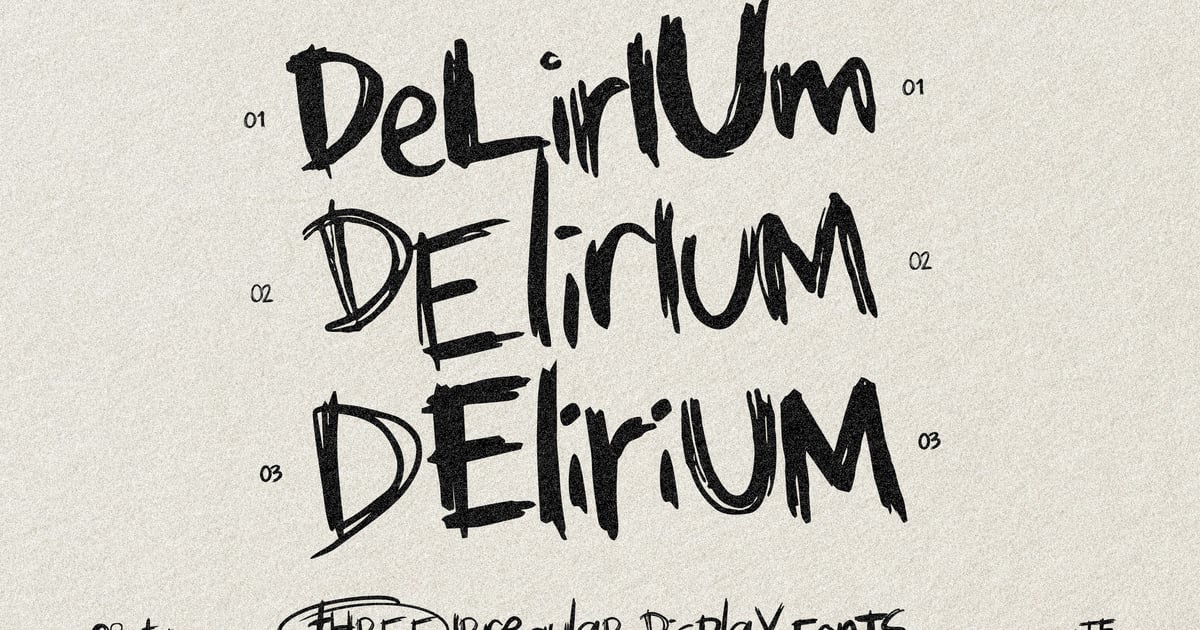 01 DeLirIUm 01
02 DElirIUM 02
03 DEliriUM 03
(THREE) IRregular DisplaY FonTS